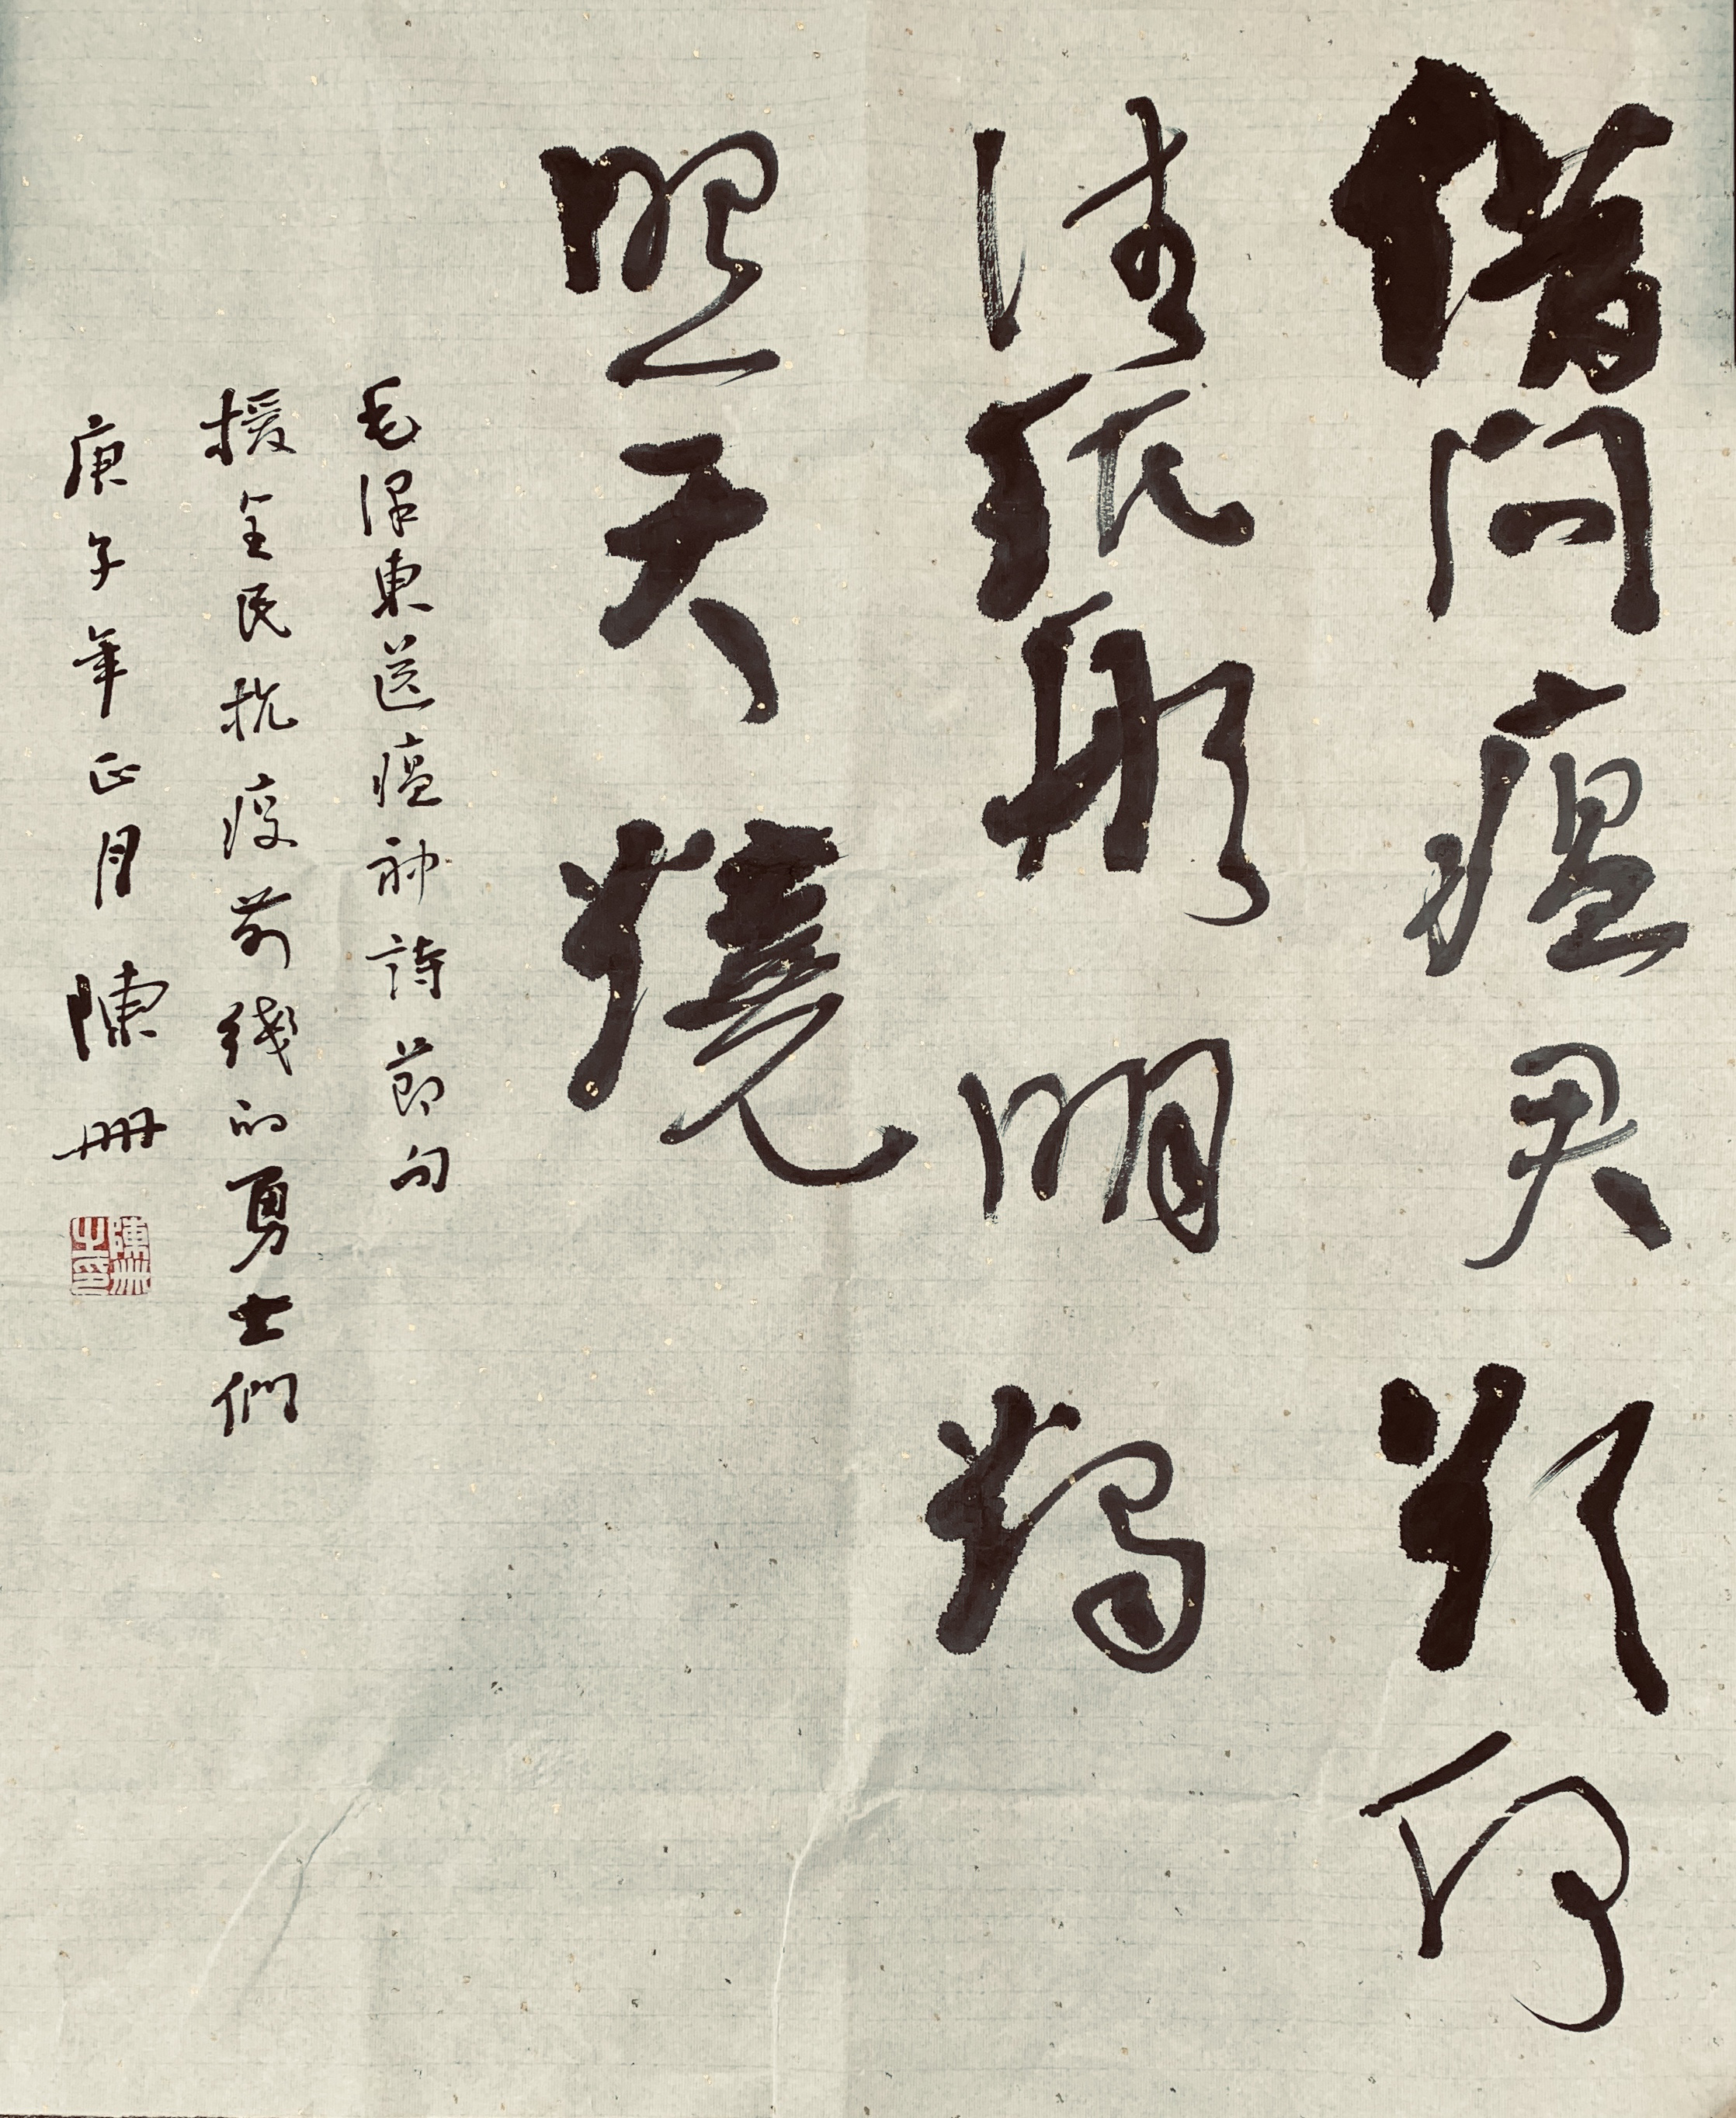 借問瘟君欲何
往紙船明燭
照天燒
毛澤東送瘟神詩節句
援全民抗疫前綫的勇士們
庚子年正月陳冊
陳冊之印